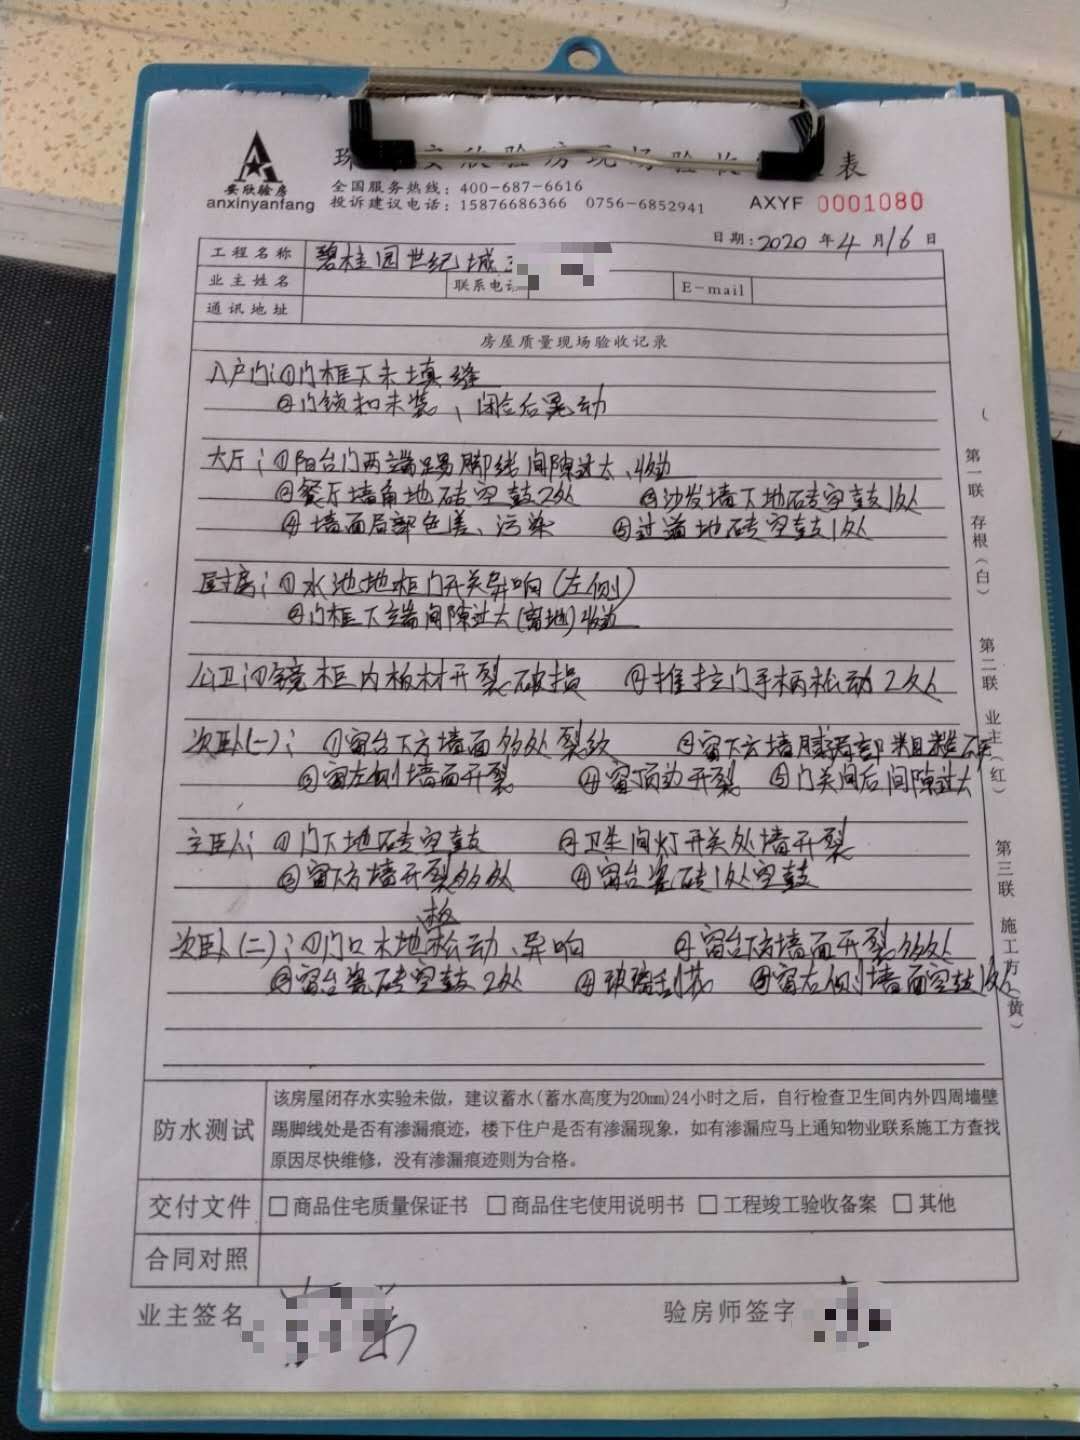 安欣验房
anxinyanfang
安欣验房现场验收 表
全国服务热线：400-687-6616
投诉建议电话：15876686366 0756-6852941
AXYF 0001080
日期：2020 年 4 月 16 日
工程名称 碧桂园世纪城
业主姓名 联系电话 E-mail
通讯地址
房屋质量现场验收记录
入户门：①门框下未填缝
②门锁扣未装、闭合后晃动
大厅：①阳台门两端踢脚线间隙过大、收边
②餐厅墙角地砖空鼓2处 ③沙发墙下地砖空鼓1处
④墙面局部色差、污染 ⑤过道地砖空鼓1处
厨房：①水池地柜门开关异响(左侧)
②门框下端间隙过大(离地)收边
公卫：①镜柜内板材开裂破损 ②推拉门手柄松动2处
次卧(一)：①窗台下方墙面多处裂纹 ②窗下方墙腻局部粗糙
③窗左侧墙面开裂 ④窗顶边开裂 ⑤门关闭后间隙过大
主卧：①门下地砖空鼓 ②卫生间灯开关处墙开裂
③窗下方墙开裂多处 ④窗台瓷砖1处空鼓
次卧(二)：①门口木地板松动、异响 ②窗台下方墙面开裂多处
③窗台瓷砖空鼓2处 ④玻璃刮花 ⑤窗右侧墙面空鼓1处
第一联 存根(白)
第二联 业主(红)
第三联 施工方(黄)
防水测试
该房屋闭存水实验未做，建议蓄水(蓄水高度为20mm)24小时之后，自行检查卫生间内外四周墙壁
踢脚线处是否有渗漏痕迹，楼下住户是否有渗漏现象，如有渗漏应马上通知物业联系施工方查找
原因尽快维修，没有渗漏痕迹则为合格。
交付文件 □商品住宅质量保证书 □商品住宅使用说明书 □工程竣工验收备案 □其他
合同对照
业主签名 验房师签字